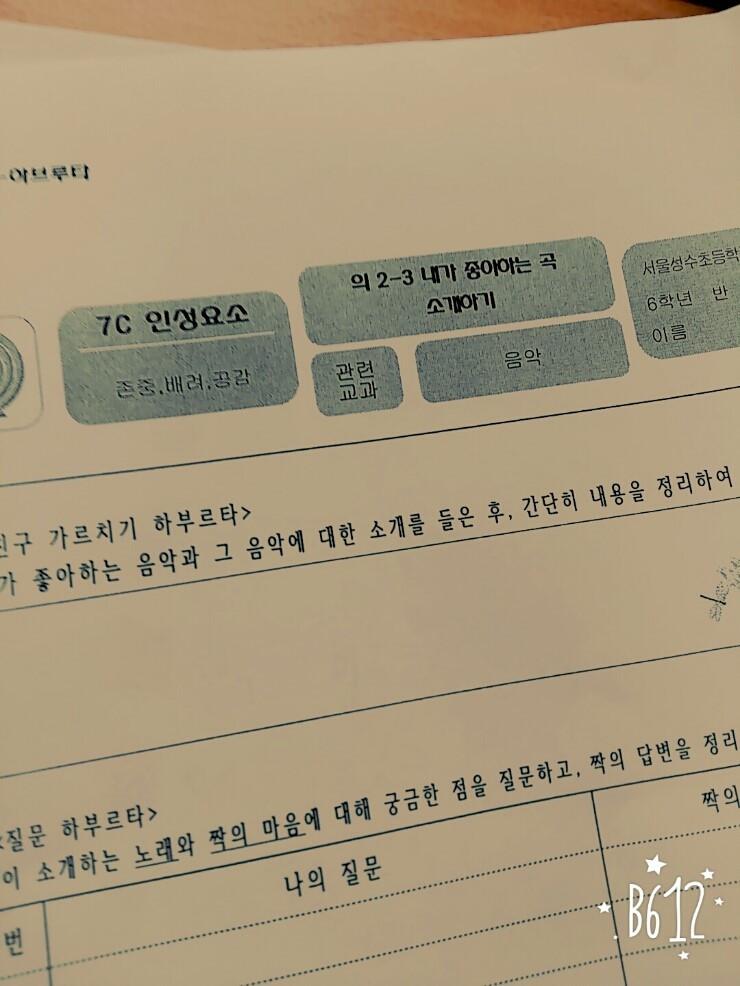 아브루타
7C 인성요소
존중,배려,공감
의 2-3 내가 좋아하는 곡
소개하기
관련
교과
음악
서울성수초등학
6학년 반
이름
친구 가르치기 하부르타>
가 좋아하는 음악과 그 음악에 대한 소개를 들은 후, 간단히 내용을 정리하여
<질문 하부르타>
이 소개하는 노래와 짝의 마음에 대해 궁금한 점을 질문하고, 짝의 답변을 정리
번
나의 질문
짝의
B612